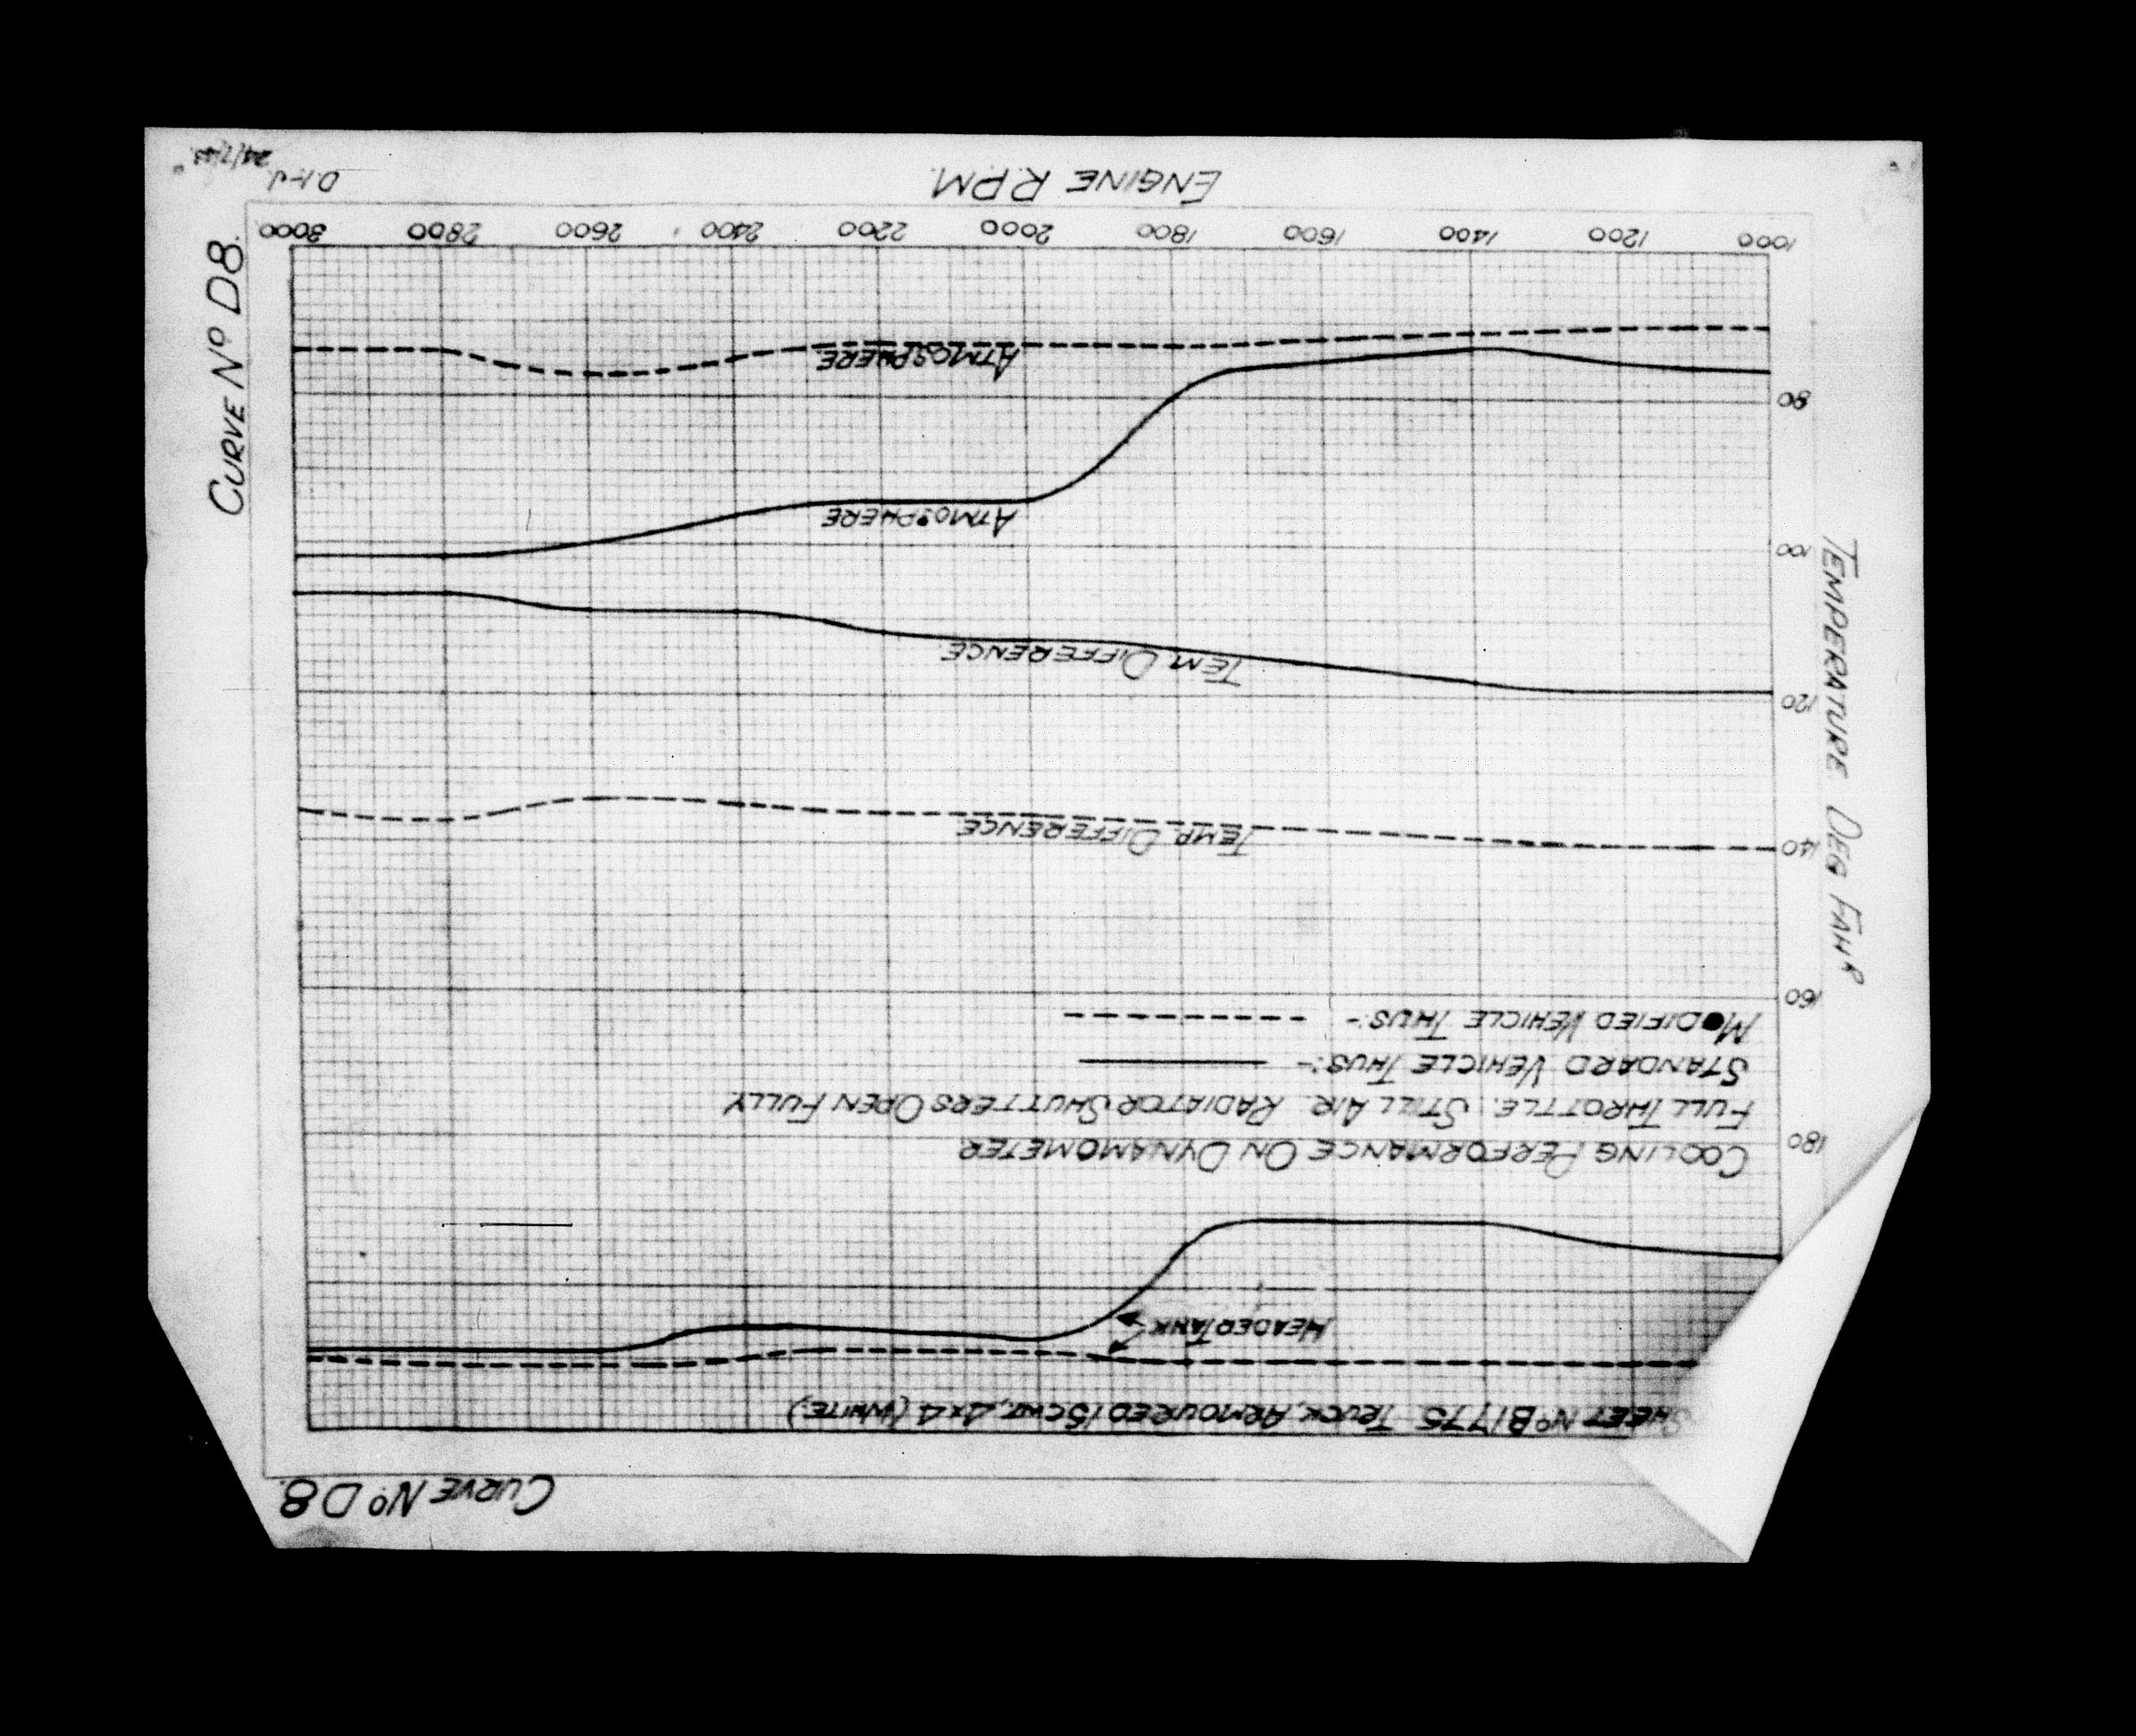 CURVE Nº D8.
SHEET Nº B1775 TRUCK, ARMOURED 15CWT, 4X4 (WHITE.)
HEADER TANK
COOLING PERFORMANCE ON DYNAMOMETER
FULL THROTTLE. STILL AIR. RADIATOR SHUTTERS OPEN FULLY
STANDARD VEHICLE THUS:-
MODIFIED VEHICLE THUS:-
180
160
140
120
100
80
TEMPERATURE DEG FAHR
TEMP. DIFFERENCE
TEM. DIFFERENCE
ATMOSPHERE
ATMOSPHERE
CURVE Nº D8.
1000 1200 1400 1600 1800 2000 2200 2400 2600 2800 3000
ENGINE R.P.M.